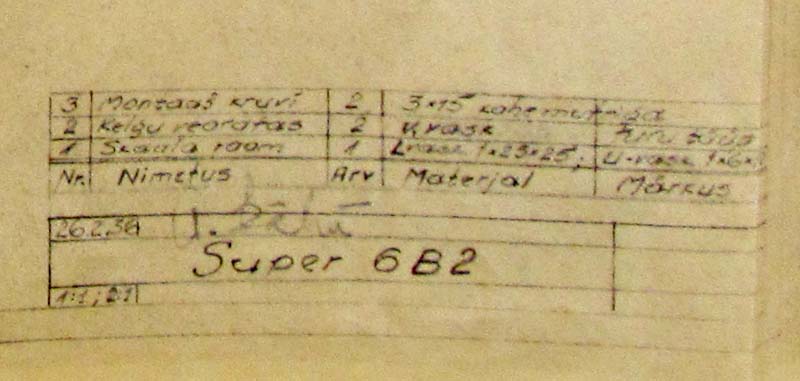 3 Montaaž kruvi 2 3×15 kahe mutriga
2 Kelgu veoratas 2 K. vask
1 Skaala raam 1 L vask 1×25×25; U-vask
Nr. Nimetus Arv Materjal Märkus
26.2.36
Super 6B2
1:1; 2:1